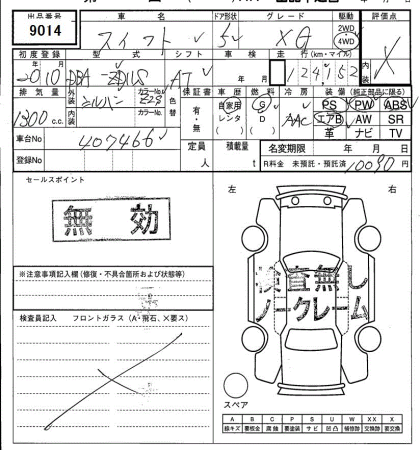 出品番号 車名 ドア形状 グレード 駆動 評価点
9014 スイフト 5 XG 2WD 4WD X
初度登録 型式 シフト 車検 走行(km・マイル)
2010 年 月 DBA- AT 年 月 124152
排気量 外装 シルバー カラーNo. Z2S 色替 保証書 車歴 燃料 冷房 装備(純正部品に限る)
1300 c.c. 内装 カラーNo. 有・無 自家用 レンタ ( ) G D ( ) AAC PS PW ABS
エアB AW SR
革 ナビ TV
車台No 407466 定員 人 積載量 t 名変期限 年 月 日
登録No R料金 未預託・預託済 10090 円
セールスポイント 左 右
無効
検査無し
ノークレーム
※注意事項記入欄(修復・不具合箇所および状態等)
検査員記入 フロントガラス(A・飛石、X要ス)
スペア
A B C P S U W X XX
線キズ 要板金 腐蝕 要塗装 サビ 凹凸 補修跡 交換跡 要交換